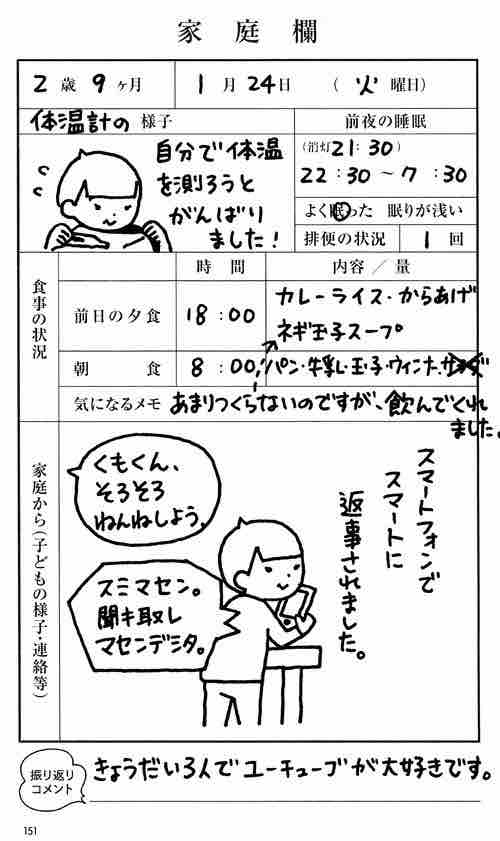 家庭欄
2歳9ヶ月 1月24日 (火曜日)
体温計の様子
自分で体温
を測ろうと
がんばり
ました!
前夜の睡眠
(消灯21:30)
22:30〜7:30
よく眠った 眠りが浅い
排便の状況 1回
食事の状況
時間 内容/量
前日の夕食 18:00
カレーライス・からあげ
ネギ玉子スープ
朝食 8:00 パン・牛乳・玉子・ウィンナー・サラダ
気になるメモ あまりつくらないのですが、飲んでくれ
ました。
家庭から(子どもの様子・連絡等)
くもくん、
そろそろ
ねんねしよう。
スミマセン。
聞キ取レ
マセンデシタ。
スマートフォンで
スマートに
返事されました。
振り返り
コメント
きょうだい3人でユーチューブが大好きです。
151